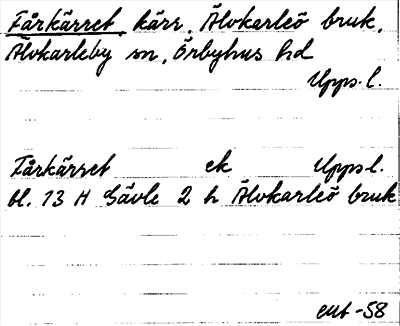 Fårkärret, kärr, Älvkarleö bruk,
Älvkarleby sn, Örbyhus hd
Upps. l.
Fårkärret ek Upps. l.
bl. 13 H Gävle 2 h Älvkarleö bruk
eut -58